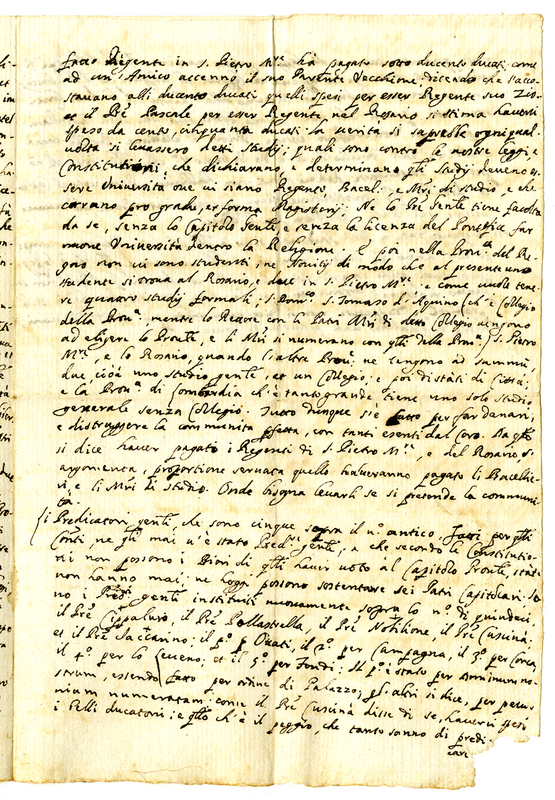 fatto Regente in S. Pietro M.re ha pagato sotto ducento ducati come
ad un' Amico accennò il suo Parente Vecchione dicendo che s'acco-
stavano alli ducento ducati quelli spesi per esser Regente suo Zio.
et il Prē Pascale per esser Regente nel Rosario si stima haverci
speso da cento, cinquanta ducati la verità si saprebbe ogni qual
volta si levassero detti studij; quali sono contro le nostre leggi, e
Constitutioni, che dichiarano, e determinano gli studij deveno es-
sere Università ove vi siano Regente, Bacel. e M.ri di studio, e che
corrano pro gradu, et forma Magisterij; Ne lo Prē Gen̄le tiene facoltà
da se, senza lo Capitolo Gen̄le, e senza la licenza del Pontefice far
nuove Università dentro la Religione. E poi nella Prov.a del Re-
gno non vi sono studenti, ne Novitij di modo che al presente uno
studente si trova al Rosario, e due in S. Pietro M.re e come vuole tene-
re quattro studij formali, S. Dom.co S. Tomaso d'Aquino (ch'è Collegio
della Prov.a mentre lo Rettore con li Patri M.ri di detto Collegio vengono
ad eligere lo Pro͞nle, e li M.ri si numerano con q͞lli della Prov.a) S. Pietro
M.re, e lo Rosario, quando l'altre Prov.e ne tengono ad summum
due, cioè uno studio gen̄le, et un Collegio, e poi di stati di Città,
e la Prov.a di Lombardia ch'è tanto grande, tiene uno solo studio
generale senza Collegio. Tutto dunque s'è fatto per far danari,
e distruggere la communità p͞fetta, con tanti esenti dal Coro. Da q͞llo
si dice haver pagato i Regenti di S. Pietro M.re, e del Rosario s'
argomenta, proportione servata quello haveranno pagato li Bacellie-
ri, e li M.ri di studio. Onde bisogna levarli se si pretende la communi-
tà.
Li Predicatori gen̄li, che sono cinque sopra il n.o antico fatti per q͞lli
Conti, ne gli mai v'è stato Pred.re gen̄le, e che secondo le Constitutio-
ni non possono i Priori di q͞lli haver voto al Capitolo Pro͞nle, stante
non hanno mai, ne hoggi possono sostentare sei Patri Capitolari. So-
no i Pred.ri gen̄li instituiti nuovamente sopra lo n.o di quindeci,
il Prē Cippaluro, il Prē Pollastiella, il Prē Nobilione, il Prē Cuscinà
et il Prē Saccarino; il p.o p Ovati, il 2.o per Campagna, il 3.o per Corca,
il 4.o per lo Ceveno; et il 5.o per Fondi; Il p.o è stato per Arminum no-
strum, essendo fatto per ordine di Palazzo; gl'altri si dice, per pecu-
niam numeratam: come il Prē Cuscinà disse di se, haverci spesi
i belli ducatoni; e q͞llo ch'è il peggio, che tanto sanno di predi-
care